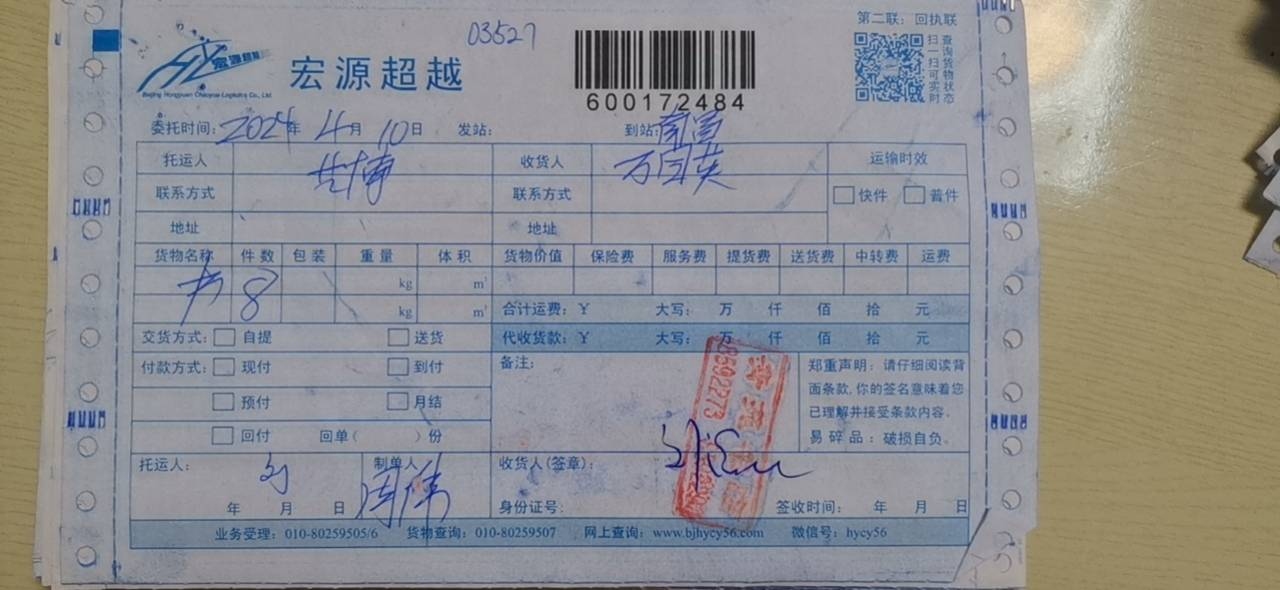 03527
第二联：回执联
宏源超越
Beijing Hongyuan Chaoyue Logistics Co., Ltd.
宏源超越
600172484
扫一扫可查询货物实时状态
委托时间：2024年 4月 10日 发站： 到站：
托运人 收货人 万国英 运输时效
联系方式 联系方式 快件 普件
地址 地址
货物名称 件数 包装 重量 体积 货物价值 保险费 服务费 提货费 送货费 中转费 运费
kg m³
8 kg m³ 合计运费：¥ 大写： 万 仟 佰 拾 元
交货方式： 自提 送货 代收货款：¥ 大写： 万 仟 佰 拾 元
付款方式： 现付 到付 备注：
预付 月结
回付 回单（ ）份
郑重声明：请仔细阅读背
面条款，你的签名意味着您
已理解并接受条款内容。
易碎品：破损自负。
85592273
托运人： 制单人 周伟 收货人(签章)：
年 月 日 身份证号： 签收时间： 年 月 日
业务受理：010-80259505/6 货物查询：010-80259507 网上查询：www.bjhycy56.com 微信号：hycy56